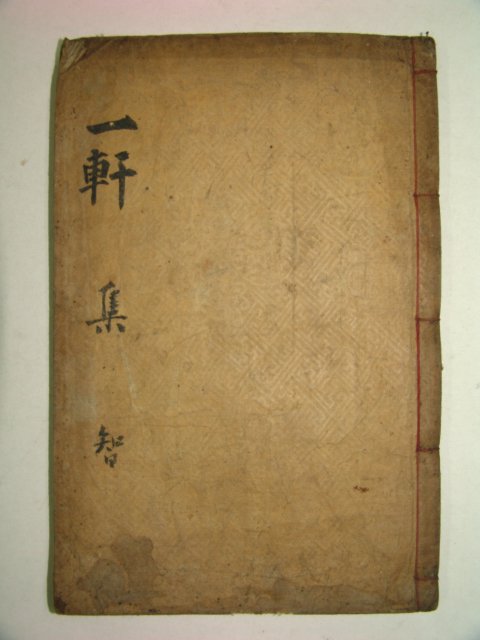 一軒集 智